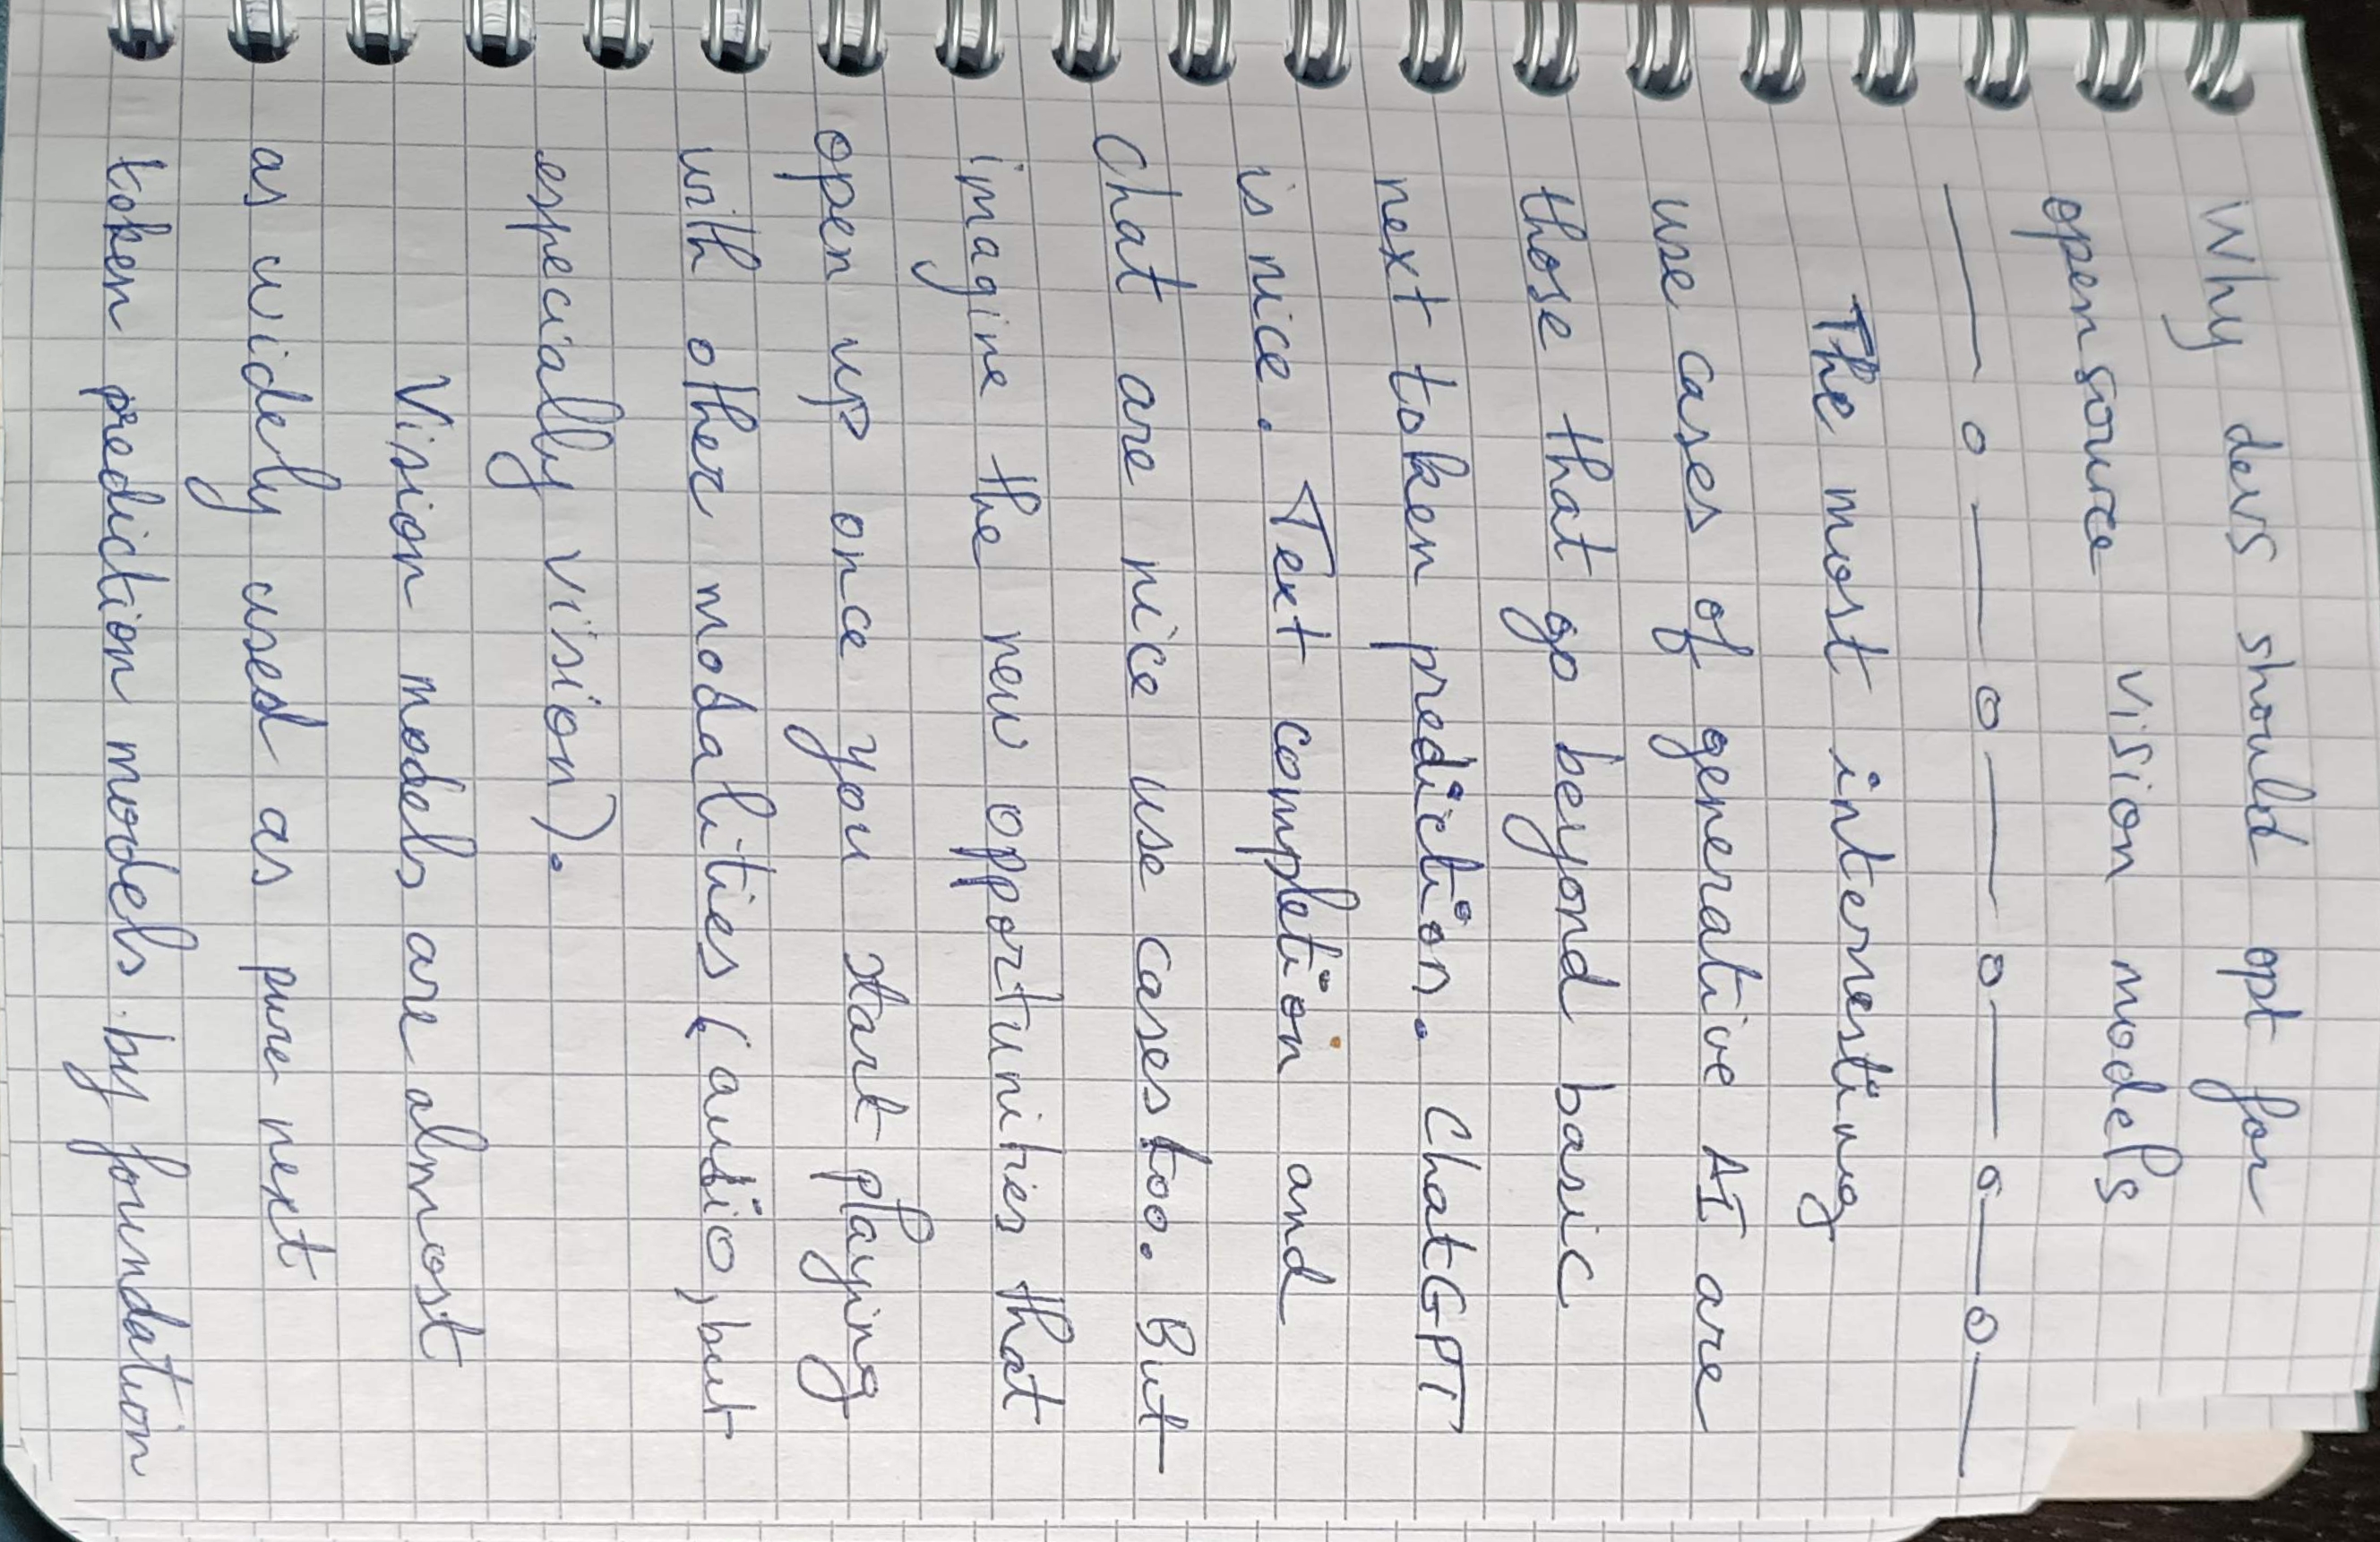 Why devs should opt for
open source vision models
The most interesting
use cases of generative AI are
those that go beyond basic
next token prediction. ChatGPT
is nice. Text completion and
Chat are nice use cases too. But
imagine the new opportunities that
open up once you start playing
with other modalities (audio, but
especially vision).
Vision models are almost
as widely used as pure next
token prediction models by foundation